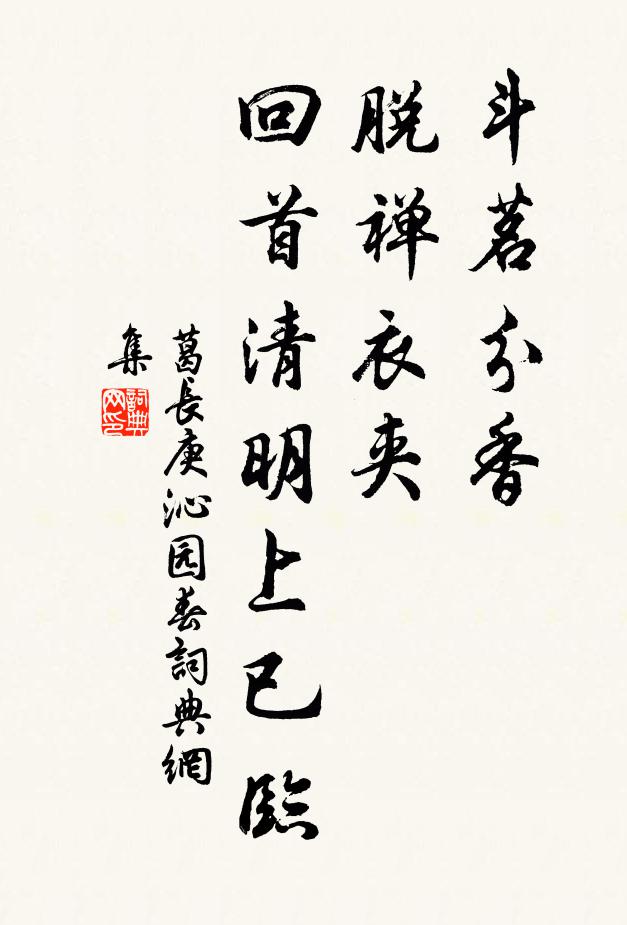 斗茗分香
脱禅衣夹
回首清明上巳臨
葛長庚沁园春詞典網
集
詞典网印